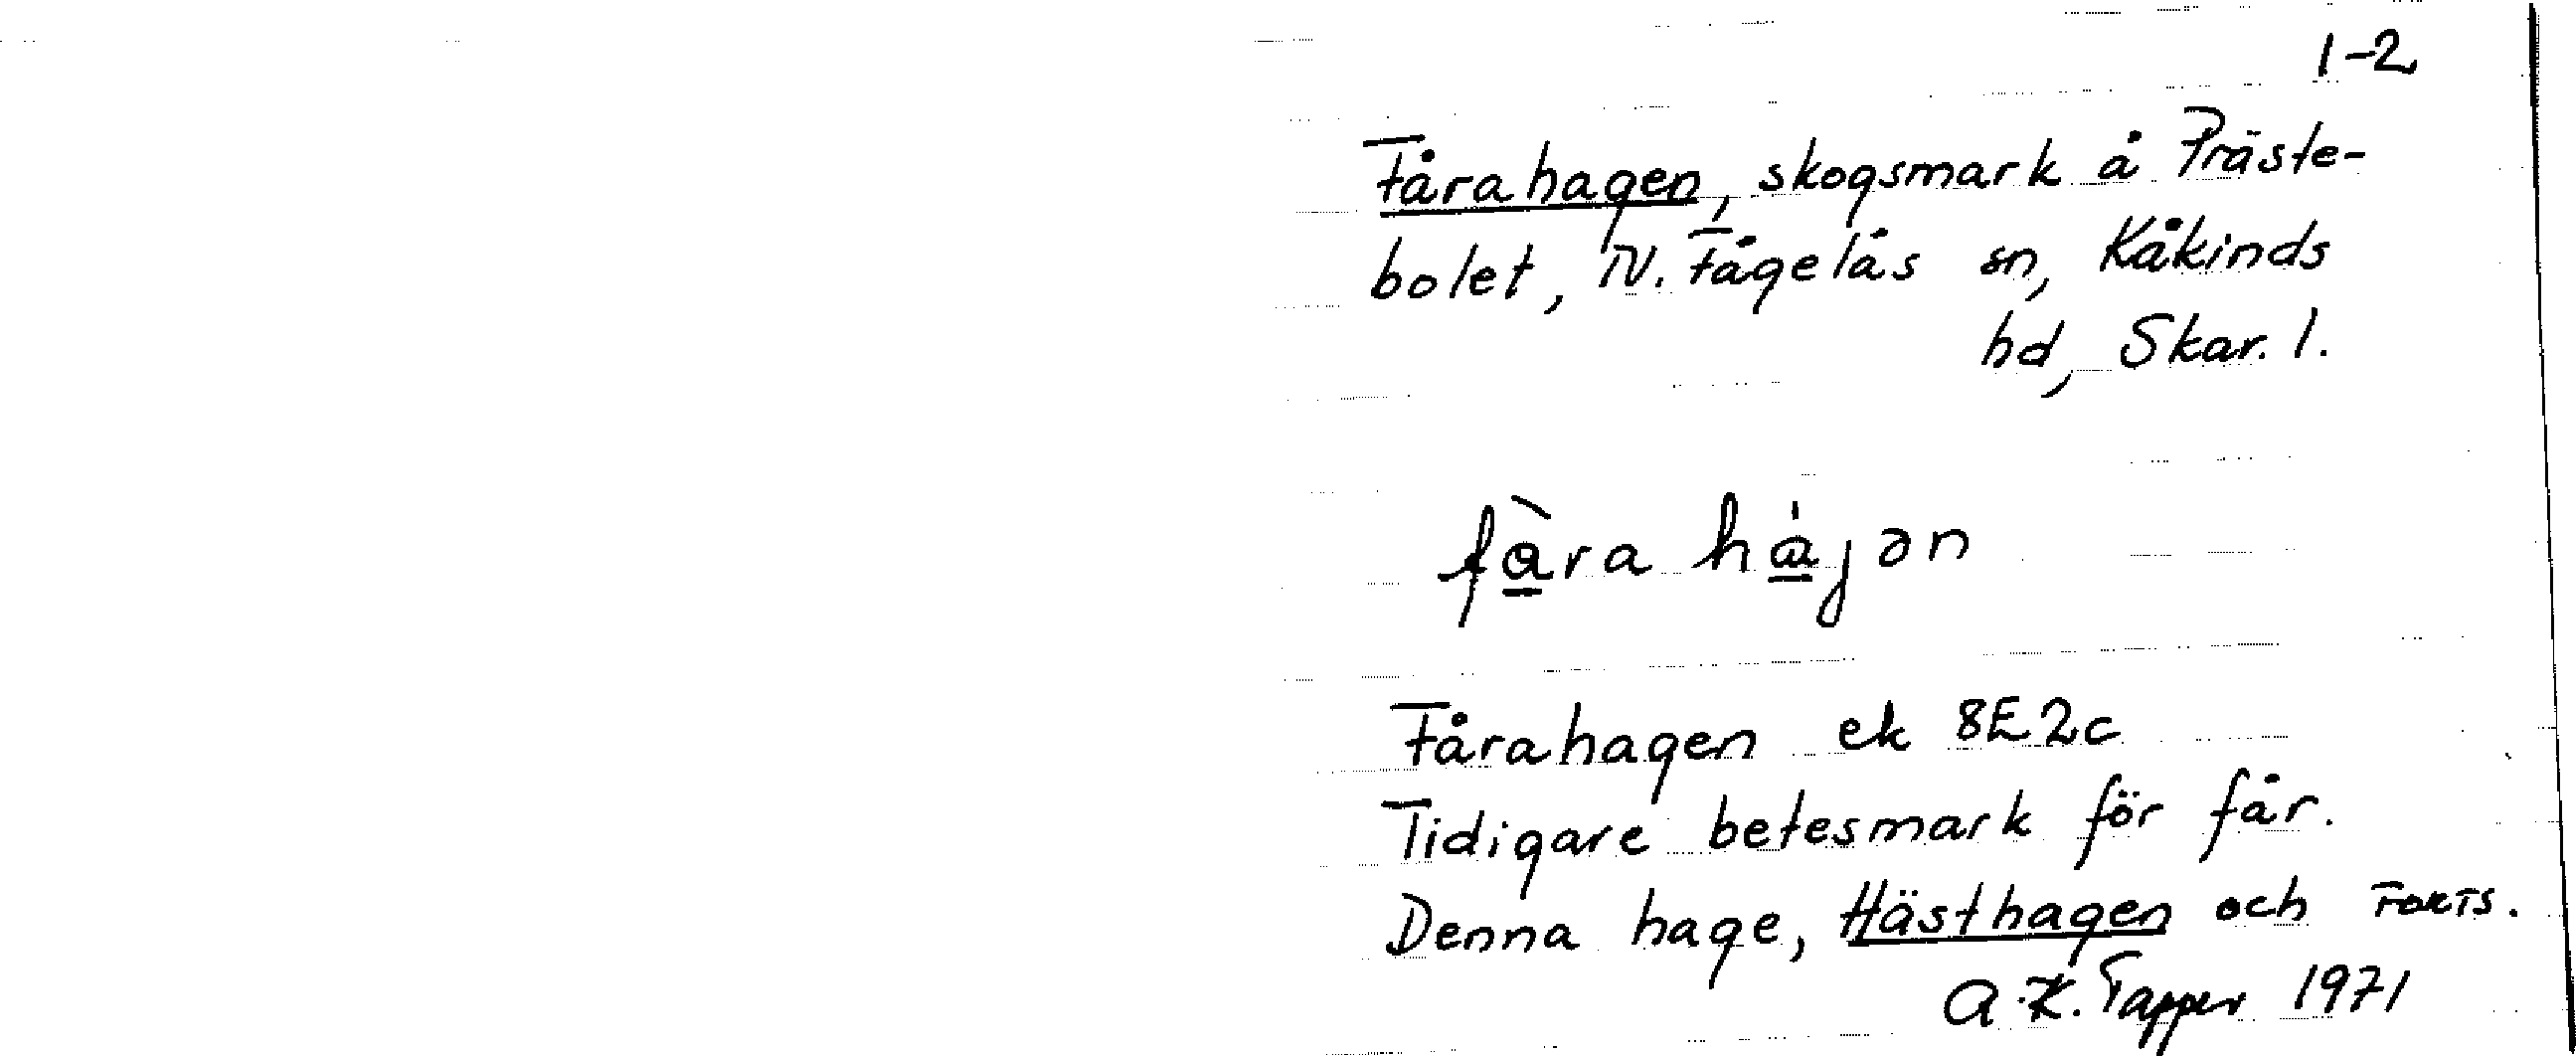 1-2
Fårahagen, skogsmark å Präste-
bolet, N. Fågelås sn, Kåkinds
hd, Skar. l.
fàra hájən
Fårahagen ek 8E2c
Tidigare betesmark för får.
Denna hage, Hästhagen och FORTS.
A-K. Tapper 1971